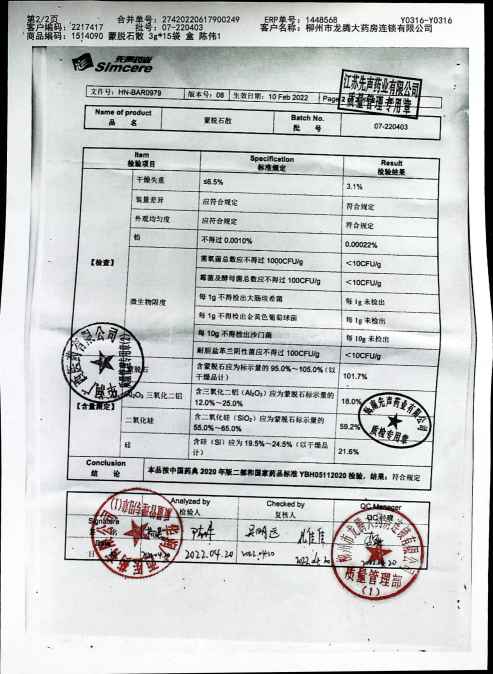 第2/2页 合并单号: 27420220617900249 ERP单号: 1448568 Y0316-Y0316
客户编码: 2217417 批号: 07-220403 客户名称: 柳州市龙腾大药房连锁有限公司
商品编码: 1514090 蒙脱石散 3g*15袋 盒 陈伟1
先声药业
Simcere
江苏先声药业有限公司
质量管理专用章
文件号: HN-BAR0979 版本号: 08 生效日期: 10 Feb 2022 Page 2
Name of product 品名 蒙脱石散 Batch No. 批号 07-220403
Item 检验项目 Specification 标准规定 Result 检验结果
【检查】
干燥失重 ≤6.5% 3.1%
装量差异 应符合规定 符合规定
外观均匀度 应符合规定 符合规定
铅 不得过 0.0010% 0.00022%
微生物限度
需氧菌总数应不得过 1000CFU/g <10CFU/g
霉菌及酵母菌总数应不得过 100CFU/g <10CFU/g
每 1g 不得检出大肠埃希菌 每 1g 未检出
每 1g 不得检出金黄色葡萄球菌 每 1g 未检出
每 10g 不得检出沙门菌 每 10g 未检出
耐胆盐革兰阴性菌应不得过 100CFU/g <10CFU/g
【含量测定】
蒙脱石 含蒙脱石应为标示量的 95.0%~105.0%（以干燥品计） 101.7%
Al₂O₃ 三氧化二铝 含三氧化二铝（Al₂O₃）应为蒙脱石标示量的 12.0%~25.0% 18.0%
二氧化硅 含二氧化硅（SiO₂）应为蒙脱石标示量的 55.0%~65.0% 59.2%
硅 含硅（Si）应为 19.5%~24.5%（以干燥品计） 21.6%
海南先声药业有限公司
质检专用章
Conclusion 结论 本品按中国药典 2020 年版二部和国家药品标准 YBH05112020 检验，结果：符合规定
Analyzed by 检验人 Checked by 复核人 QC Manager QC 经理
Signature
2022.04.20 2022.04.20
质量管理专用章
(1)
柳州市龙腾大药房连锁有限公司
质量管理部
(1)